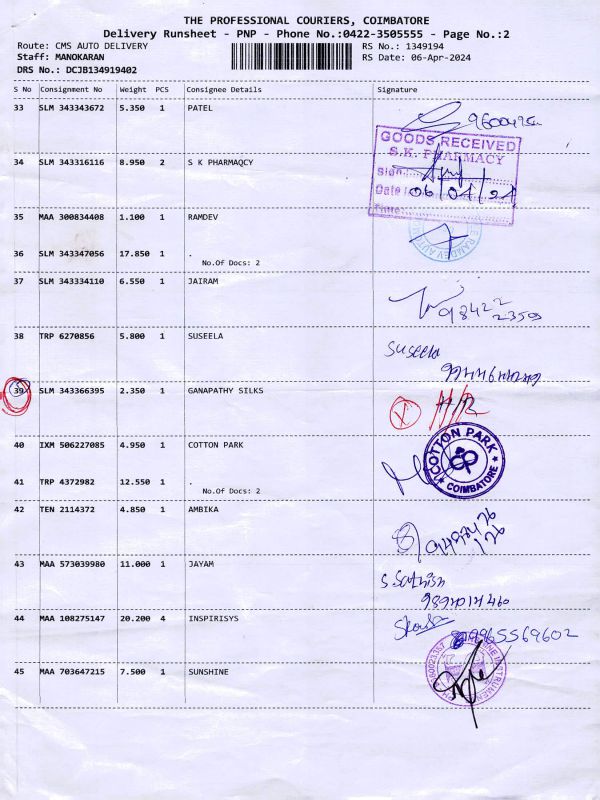 THE PROFESSIONAL COURIERS, COIMBATORE
Delivery Runsheet - PNP - Phone No.:0422-3505555 - Page No.:2
Route: CMS AUTO DELIVERY RS No.: 1349194
Staff: MANOKARAN RS Date: 06-Apr-2024
DRS No.: DCJB134919402
S No Consignment No Weight PCS Consignee Details Signature
33 SLM 343343672 5.350 1 PATEL
GOODS RECEIVED
S.K. PHARMACY
34 SLM 343316116 8.950 2 S K PHARMAQCY
Sign:
Date: 06/04/24
Time:
35 MAA 300834408 1.100 1 RAMDEV
36 SLM 343347056 17.850 1 .
No.Of Docs: 2
37 SLM 343334110 6.550 1 JAIRAM
98422
22359
38 TRP 6270856 5.800 1 SUSEELA
Suseela
39 SLM 343366395 2.350 1 GANAPATHY SILKS
40 IXM 506227085 4.950 1 COTTON PARK
COTTON PARK
COIMBATORE
41 TRP 4372982 12.550 1 .
No.Of Docs: 2
42 TEN 2114372 4.850 1 AMBIKA
43 MAA 573039980 11.000 1 JAYAM
S Sathish
44 MAA 108275147 20.200 4 INSPIRISYS
9965569602
45 MAA 703647215 7.500 1 SUNSHINE